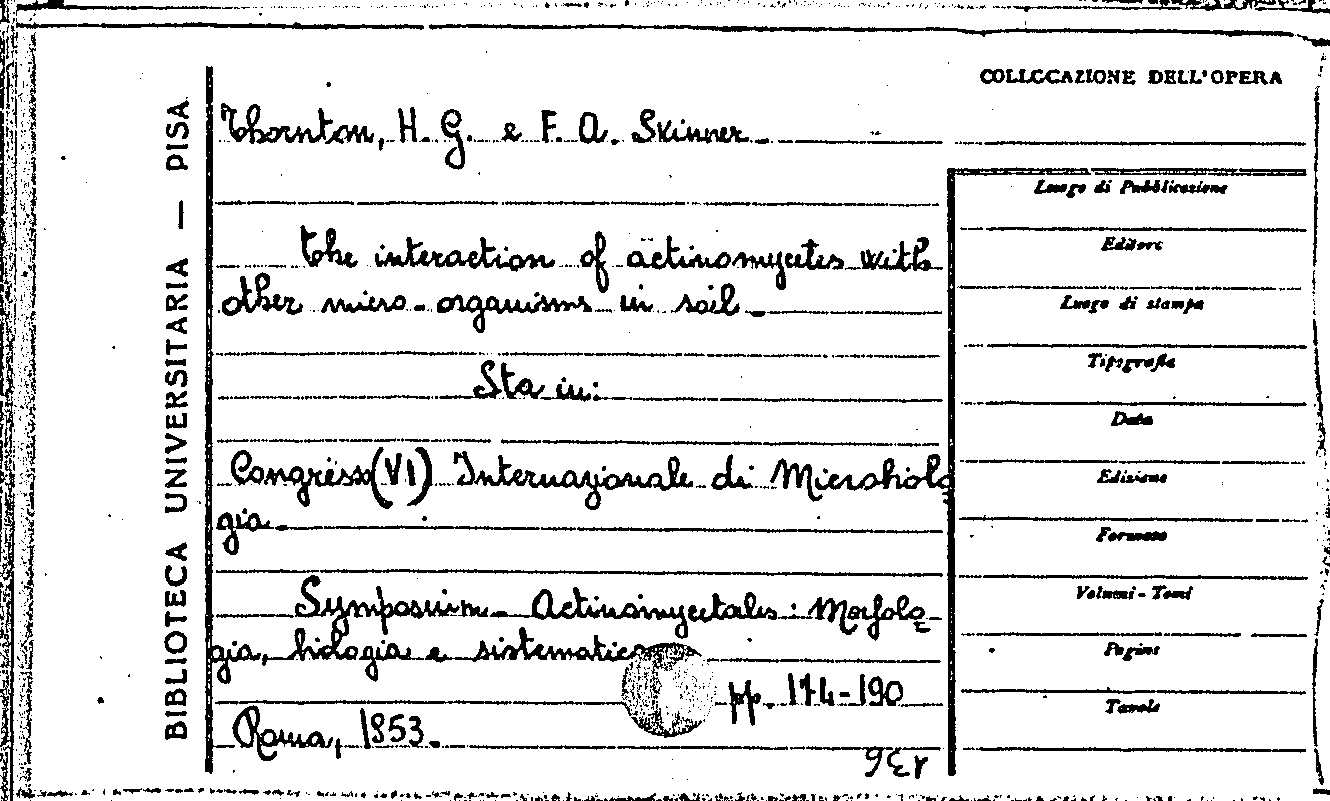 BIBLIOTECA UNIVERSITARIA — PISA
COLLOCAZIONE DELL'OPERA
Thornton, H. G. e F. A. Skinner.
The interaction of actinomycetes with
other micro-organisms in soil.
Sta in:
Congresso (VI) Internazionale di Microbiolo
gia.
Symposium - Actinomycetales: Morfolo
gia, biologia e sistematica
pp. 174-190
Roma, 1953.
Luogo di Pubblicazione
Editore
Luogo di stampa
Tipografia
Data
Edizione
Formato
Volumi - Tomi
Pagine
Tavole